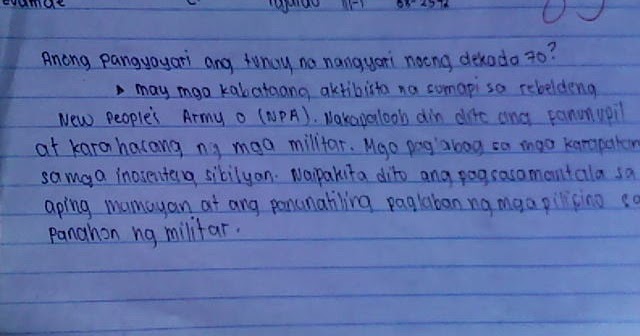 III-1
Anong pangyayari ang tunay na nangyari noong dekada 70?
may mga kabataang aktibista na sumapi sa rebeldeng
New People's Army o (NPA). Nakapaloob din dito ang panunupil
at karahasang ng mga militar. Mga paglabag sa mga karapatan
sa mga inosenteng sibilyan. Naipakita dito ang pagsasamantala sa
aping mamayan at ang pananatiling paglaban ng mga pilipino sa
panahon ng militar.